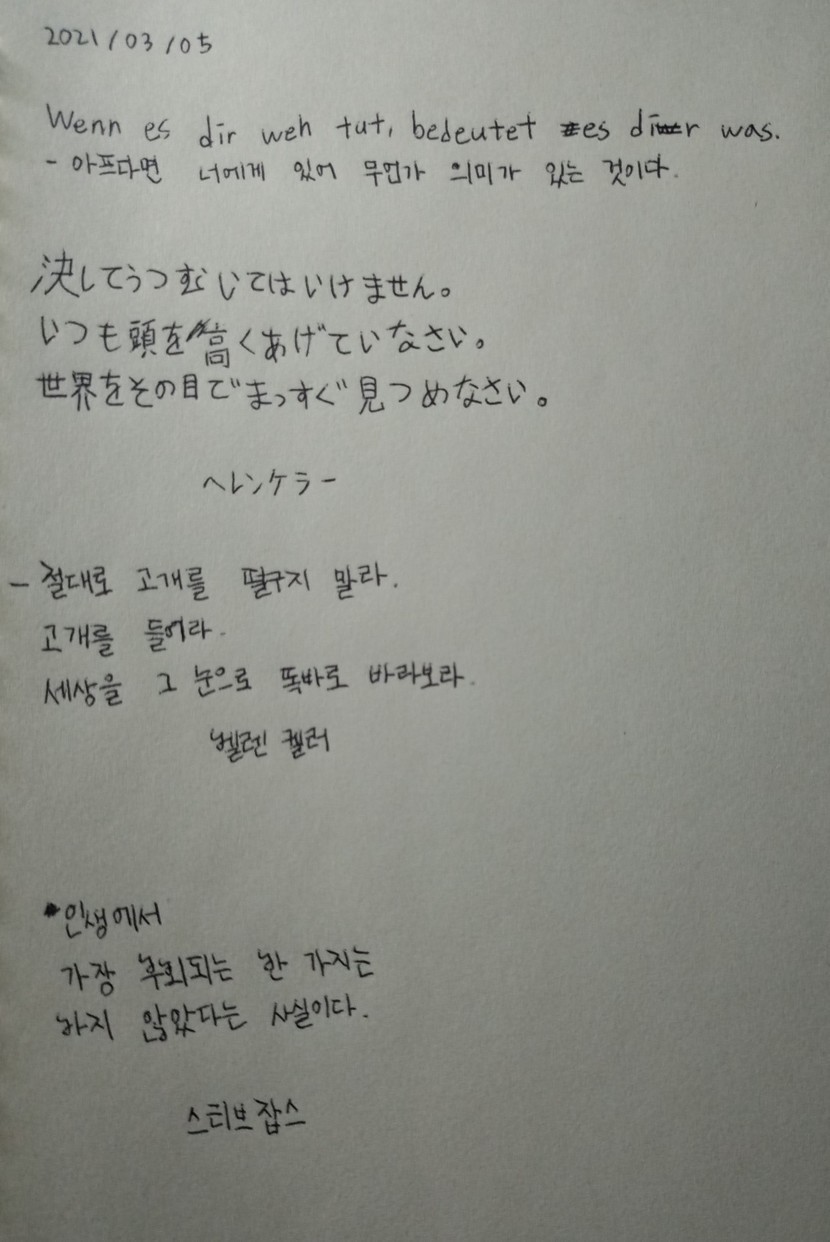 2021/03/05
Wenn es dir weh tut, bedeutet es dir was.
- 아프다면 너에게 있어 무언가 의미가 있는 것이다.
決してうつむいてはいけません。
いつも頭を高くあげていなさい。
世界をその目でまっすぐ見つめなさい。
ヘレンケラー
- 절대로 고개를 떨구지 말라.
고개를 들어라.
세상을 그 눈으로 똑바로 바라보라.
헬렌 켈러
•인생에서
가장 후회되는 한 가지는
하지 않았다는 사실이다.
스티브잡스